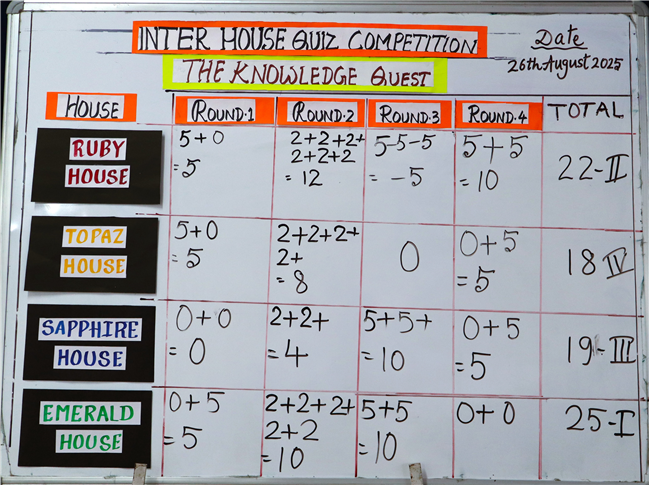 INTER HOUSE QUIZ COMPETITION
THE KNOWLEDGE QUEST
Date
26th August 2025
HOUSE
ROUND.1
ROUND.2
ROUND.3
ROUND.4
TOTAL
RUBY
HOUSE
5+0
=5
2+2+2+
2+2+2
=12
5-5-5
= -5
5+5
=10
22-II
TOPAZ
HOUSE
5+0
=5
2+2+2+
2+
=8
0
0+5
=5
18 IV
SAPPHIRE
HOUSE
0+0
=0
2+2+
=4
5+5+
=10
0+5
=5
19-III
EMERALD
HOUSE
0+5
=5
2+2+2+
2+2
=10
5+5
=10
0+0
25-I